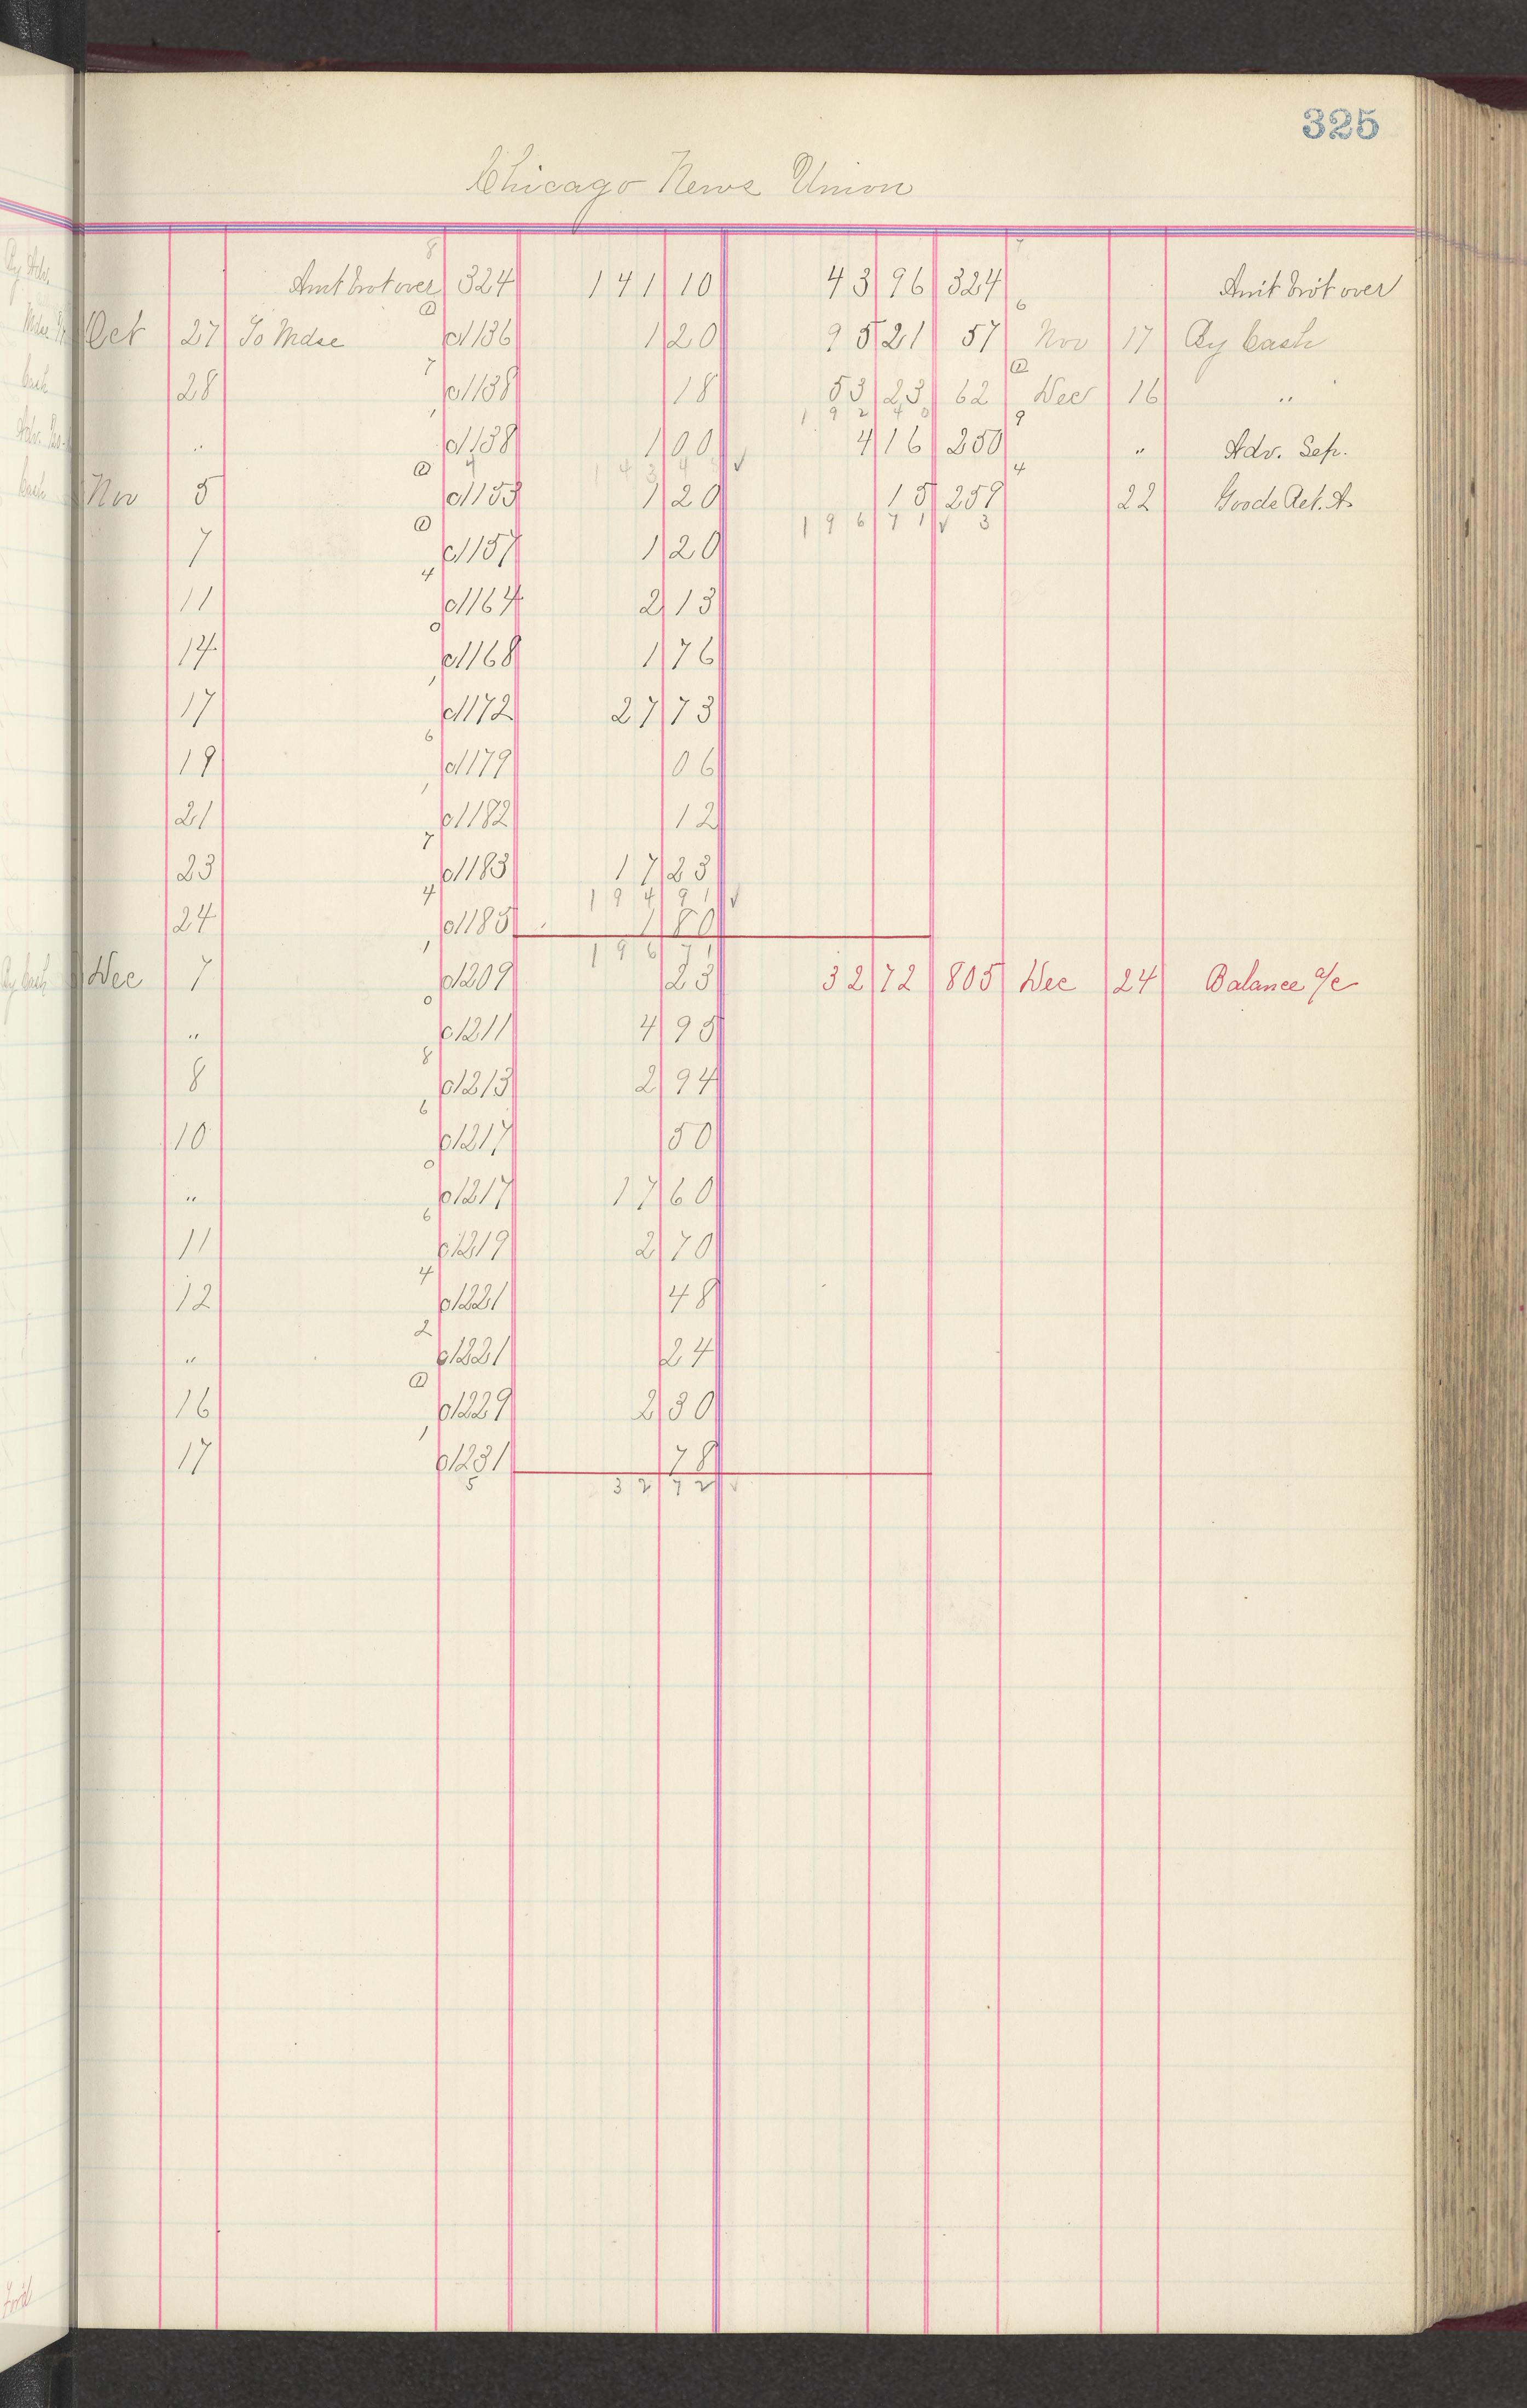 325
Chicago News Union
8
Amt brot over 324 141 10 43 96 324 Amt brot over
Oct 27 To Mdse c1136 1 20 95 21 57 Nov 17 By Cash
28 c1138 18 53 23 62 Dec 16 "
192 40
" c1138 1 00 4 16 250 " Adv. Sep.
Nov 5 c1153 1 20 15 259 22 Goods Ret.
196 71 3
7 c1157 1 20
11 c1164 2 13
14 c1168 1 76
17 c1172 27 73
19 c1179 06
21 c1182 12
23 c1183 17 23
194 91
24 c1185 1 80
196 71
Dec 7 c1209 23 32 72 805 Dec 24 Balance a/c
" c1211 4 95
8 c1213 2 94
10 c1217 50
" c1217 17 60
11 c1219 2 70
12 c1221 48
" c1221 24
16 c1229 2 30
17 c1231 78
5 32 72